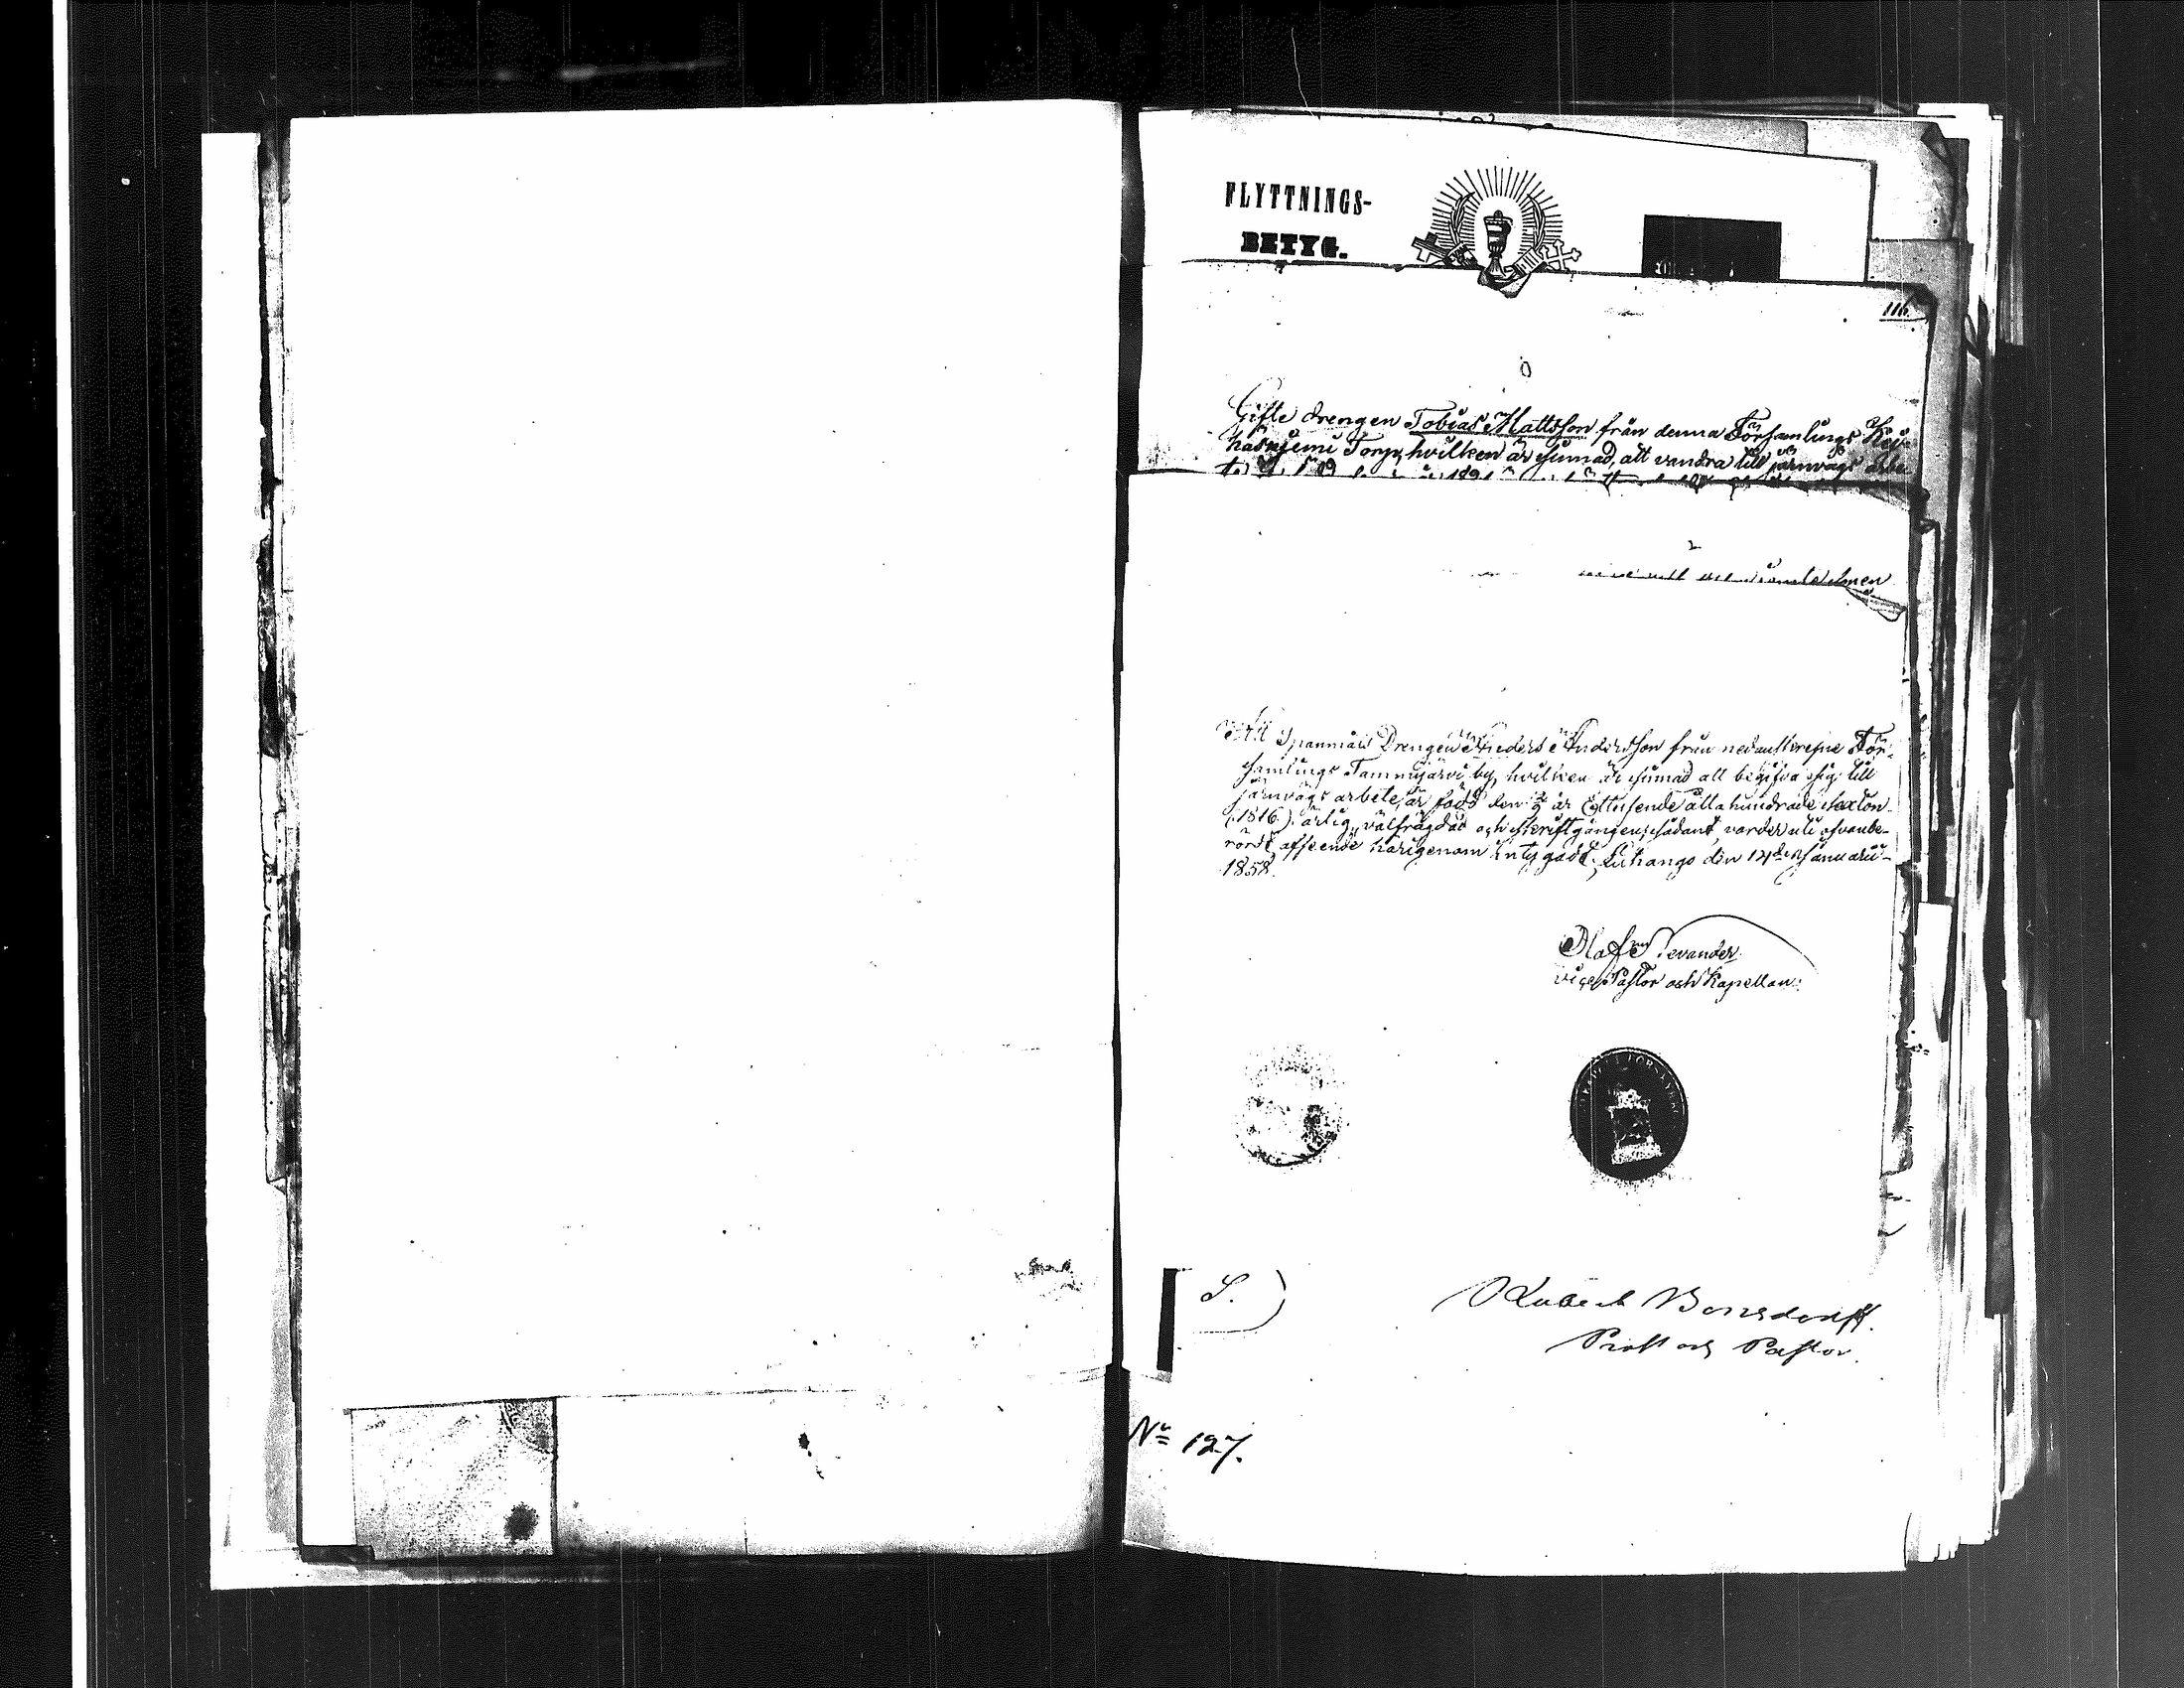 FLYTTNINGS-
BETYG.
116.
Gifte drengen Tobias Mattsson från denna Församlings
Torp, hvilken är sinnad, att vandra till järnvägs arbe
Att Spannmåls Drengen Anders Andersson från nedanskrefne För-
samlings Tammijärvi by, hvilken är sinnad att begifva sig till
järnvägs arbete, är född den år Ettusende åttahundrade sexton
(1816). ärlig, välfrägdad och skriftgången; sådant varder uti ofvanbe-
rördt afseende härigenom intygadt; Luhango den 14de Januarii
1858.
Olof Levander
vice Pastor och Kapellan.
S.
Robert Bonsdorff.
Prost och Pastor.
No 127.